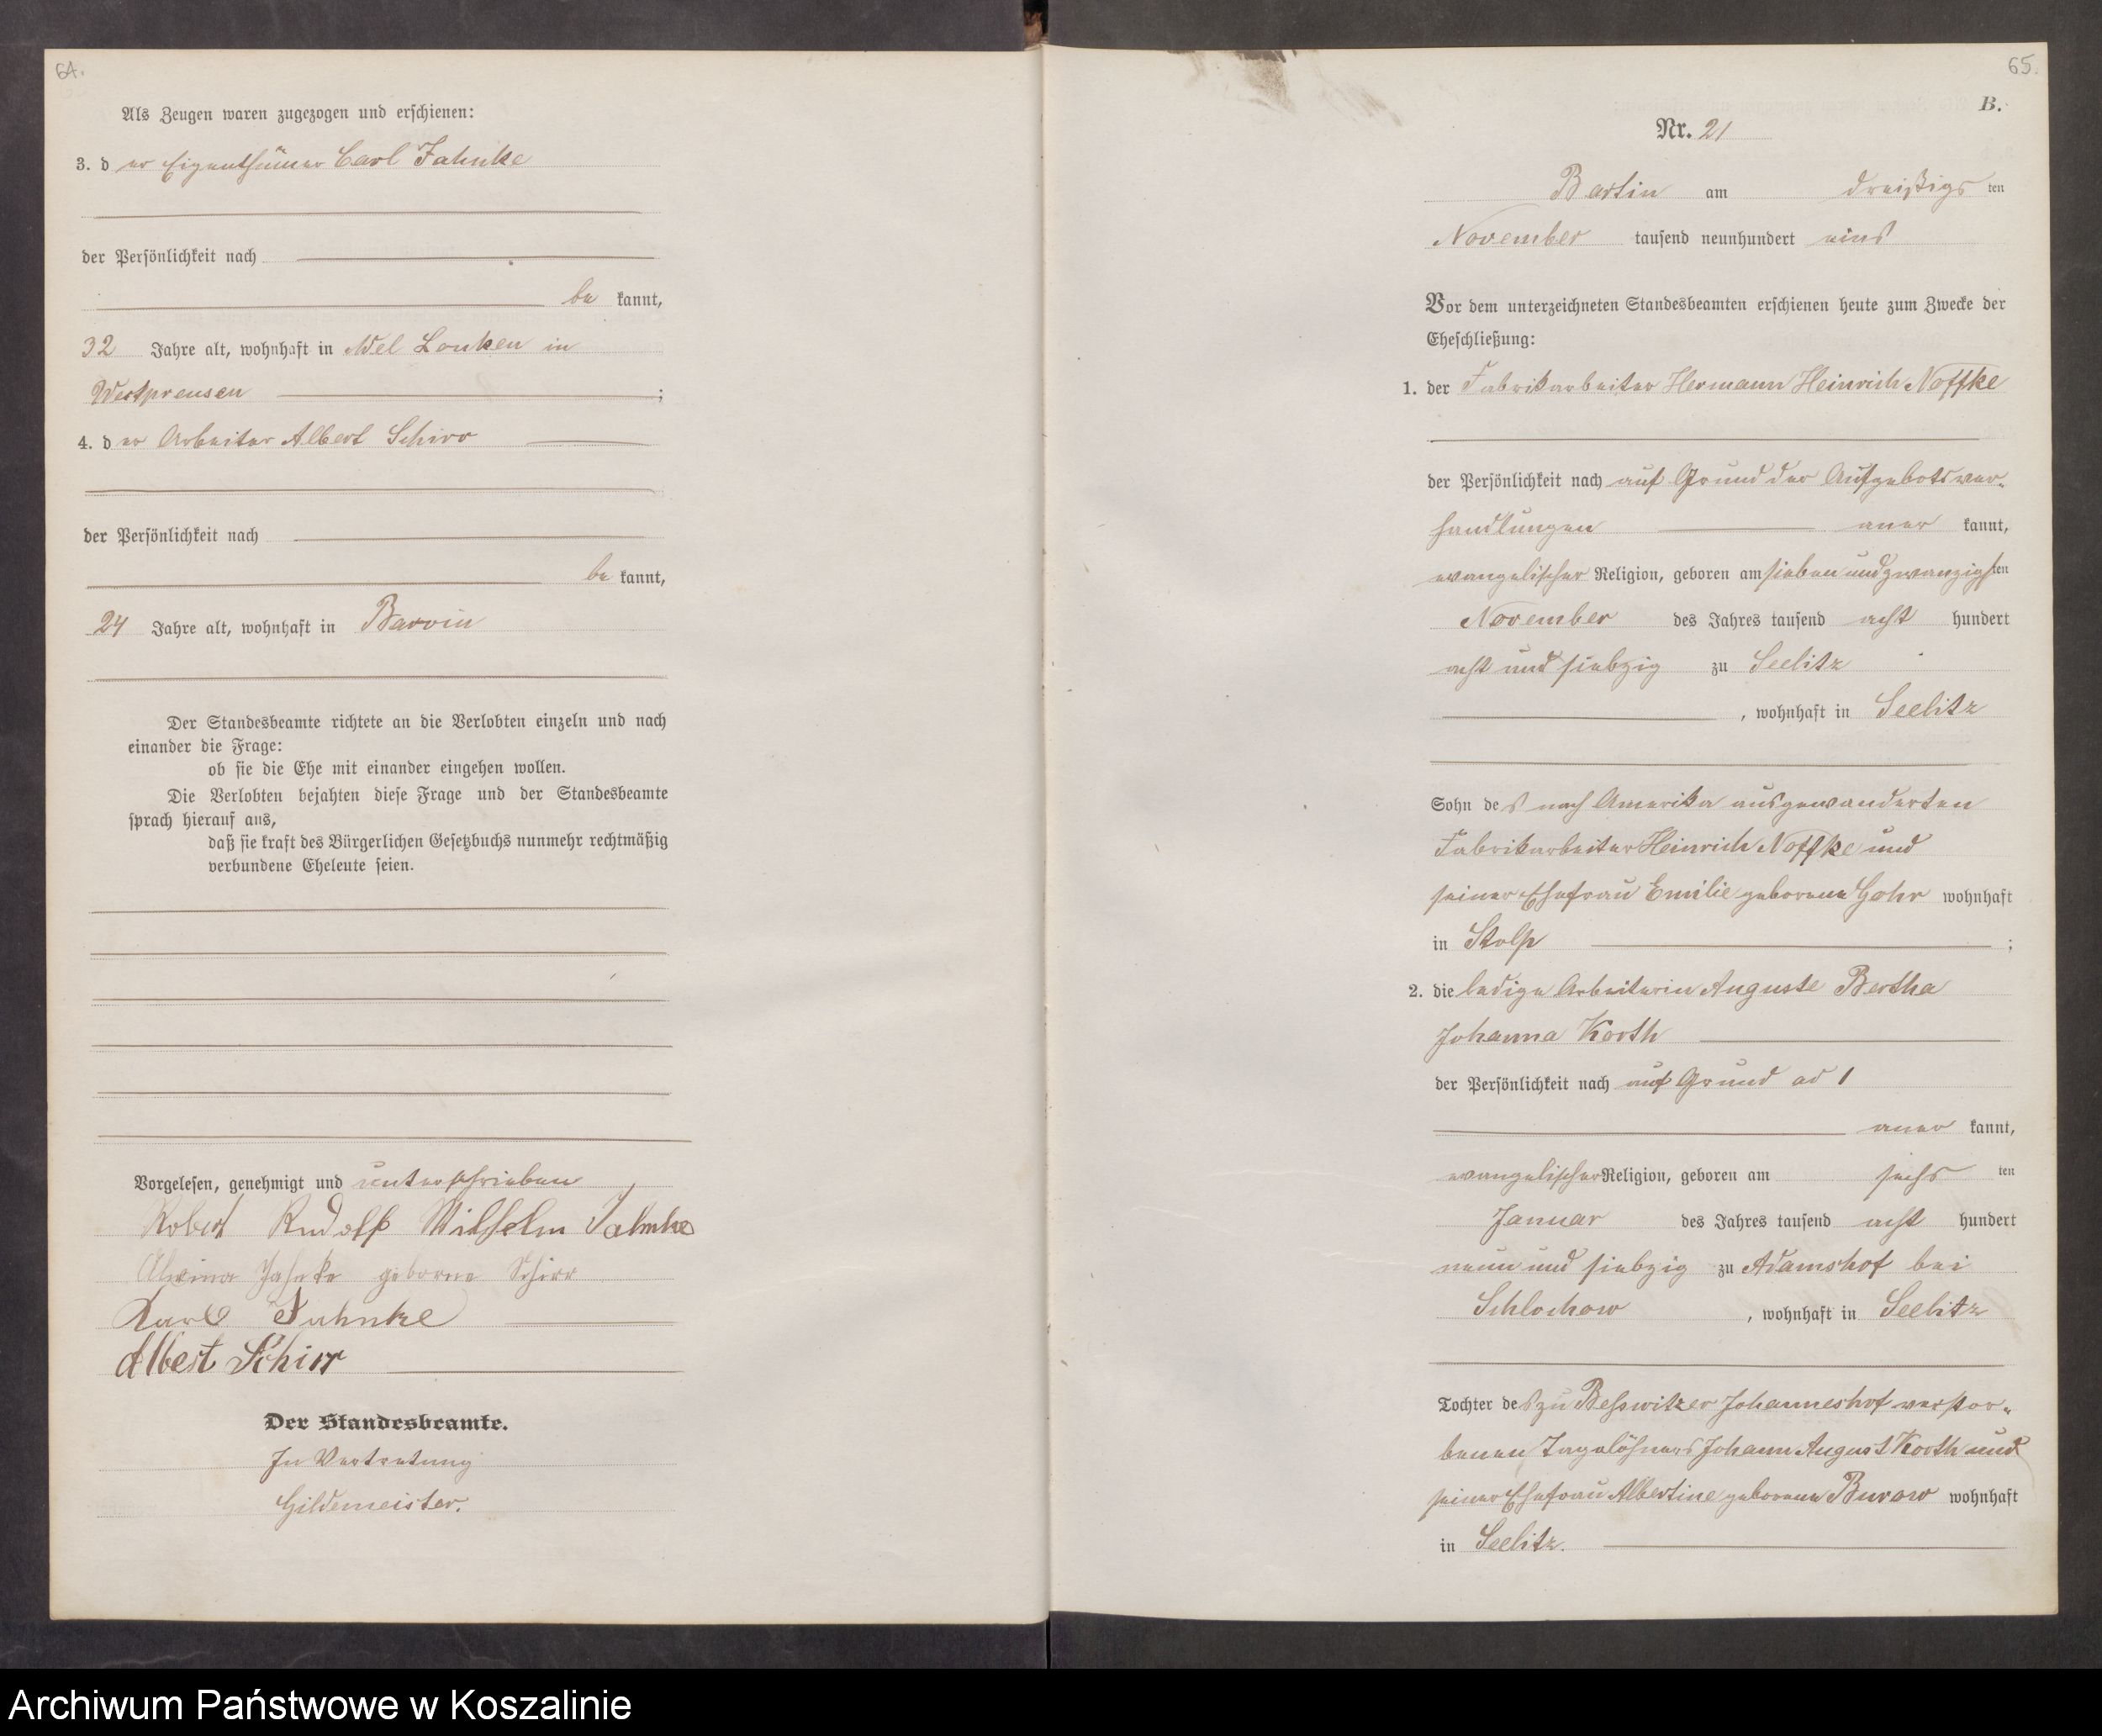 64.
Als Zeugen waren zugezogen und erschienen:
3. der Eigenthümer Carl Jahnke
der Persönlichkeit nach
be kannt,
32 Jahre alt, wohnhaft in Adel Lonken in
Westpreusen ;
4. der Arbeiter Albert Schirr
der Persönlichkeit nach
be kannt,
24 Jahre alt, wohnhaft in Barvin
Der Standesbeamte richtete an die Verlobten einzeln und nach
einander die Frage:
ob sie die Ehe mit einander eingehen wollen.
Die Verlobten bejahten diese Frage und der Standesbeamte
sprach hierauf aus,
daß sie kraft des Bürgerlichen Gesetzbuchs nunmehr rechtmäßig
verbundene Eheleute seien.
Vorgelesen, genehmigt und unterschrieben
Robert Rudolf Wilhelm Jahnke
Alwina Jahnke geborne Schirr
Karl Jahnke
Albert Schirr
Der Standesbeamte.
In Vertretung
Gildemeister.
65.
B.
Nr. 21
Bartin am dreißigsten
November tausend neunhundert eins
Vor dem unterzeichneten Standesbeamten erschienen heute zum Zwecke der
Eheschließung:
1. der Fabrikarbeiter Hermann Heinrich Noffke
der Persönlichkeit nach auf Grund der Aufgebotsver-
handlungen aner kannt,
evangelischer Religion, geboren am siebenundzwanzigsten
November des Jahres tausend acht hundert
acht und siebzig zu Seelitz
, wohnhaft in Seelitz
Sohn des nach Amerika ausgewanderten
Fabrikarbeiter Heinrich Noffke und
seiner Ehefrau Emilie geborene Gohr wohnhaft
in Stolp ;
2. die ledige Arbeiterin Auguste Bertha
Johanna Korth
der Persönlichkeit nach auf Grund ad 1
aner kannt,
evangelischer Religion, geboren am sechsten
Januar des Jahres tausend acht hundert
neun und siebzig zu Adamshof bei
Schlochow , wohnhaft in Seelitz
Tochter des zu Besswitzer Johanneshof verstor-
benen Tagelöhners Johann August Korth und
seiner Ehefrau Albertine geborene Burow wohnhaft
in Seelitz.
Archiwum Państwowe w Koszalinie